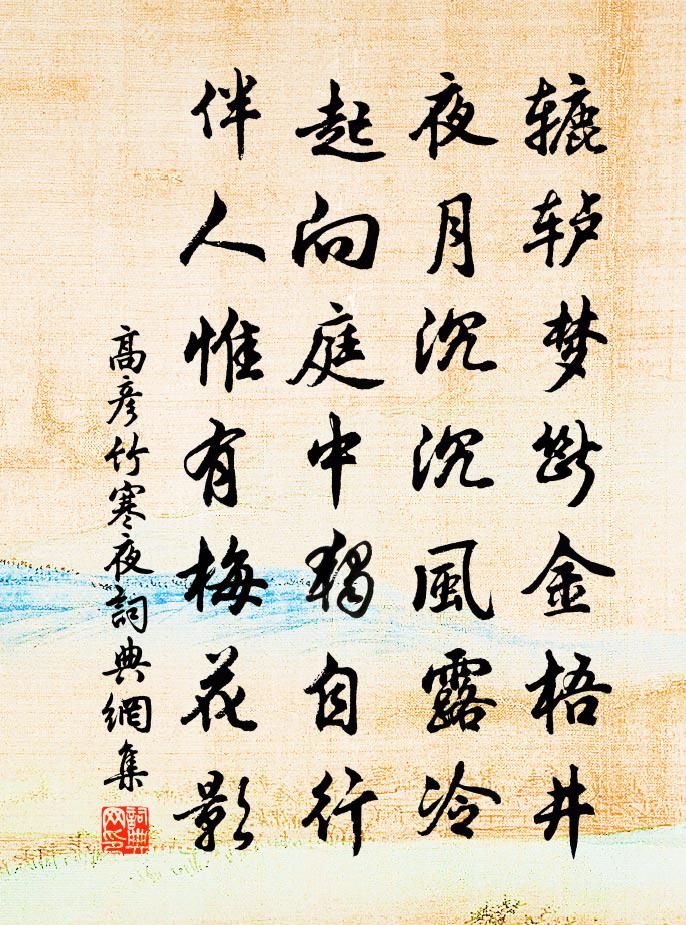 辘轳梦断金梧井
夜月沉沉風露冷
起向庭中獨自行
伴人惟有梅花影
高彦竹寒夜詞典網集
詞典网印